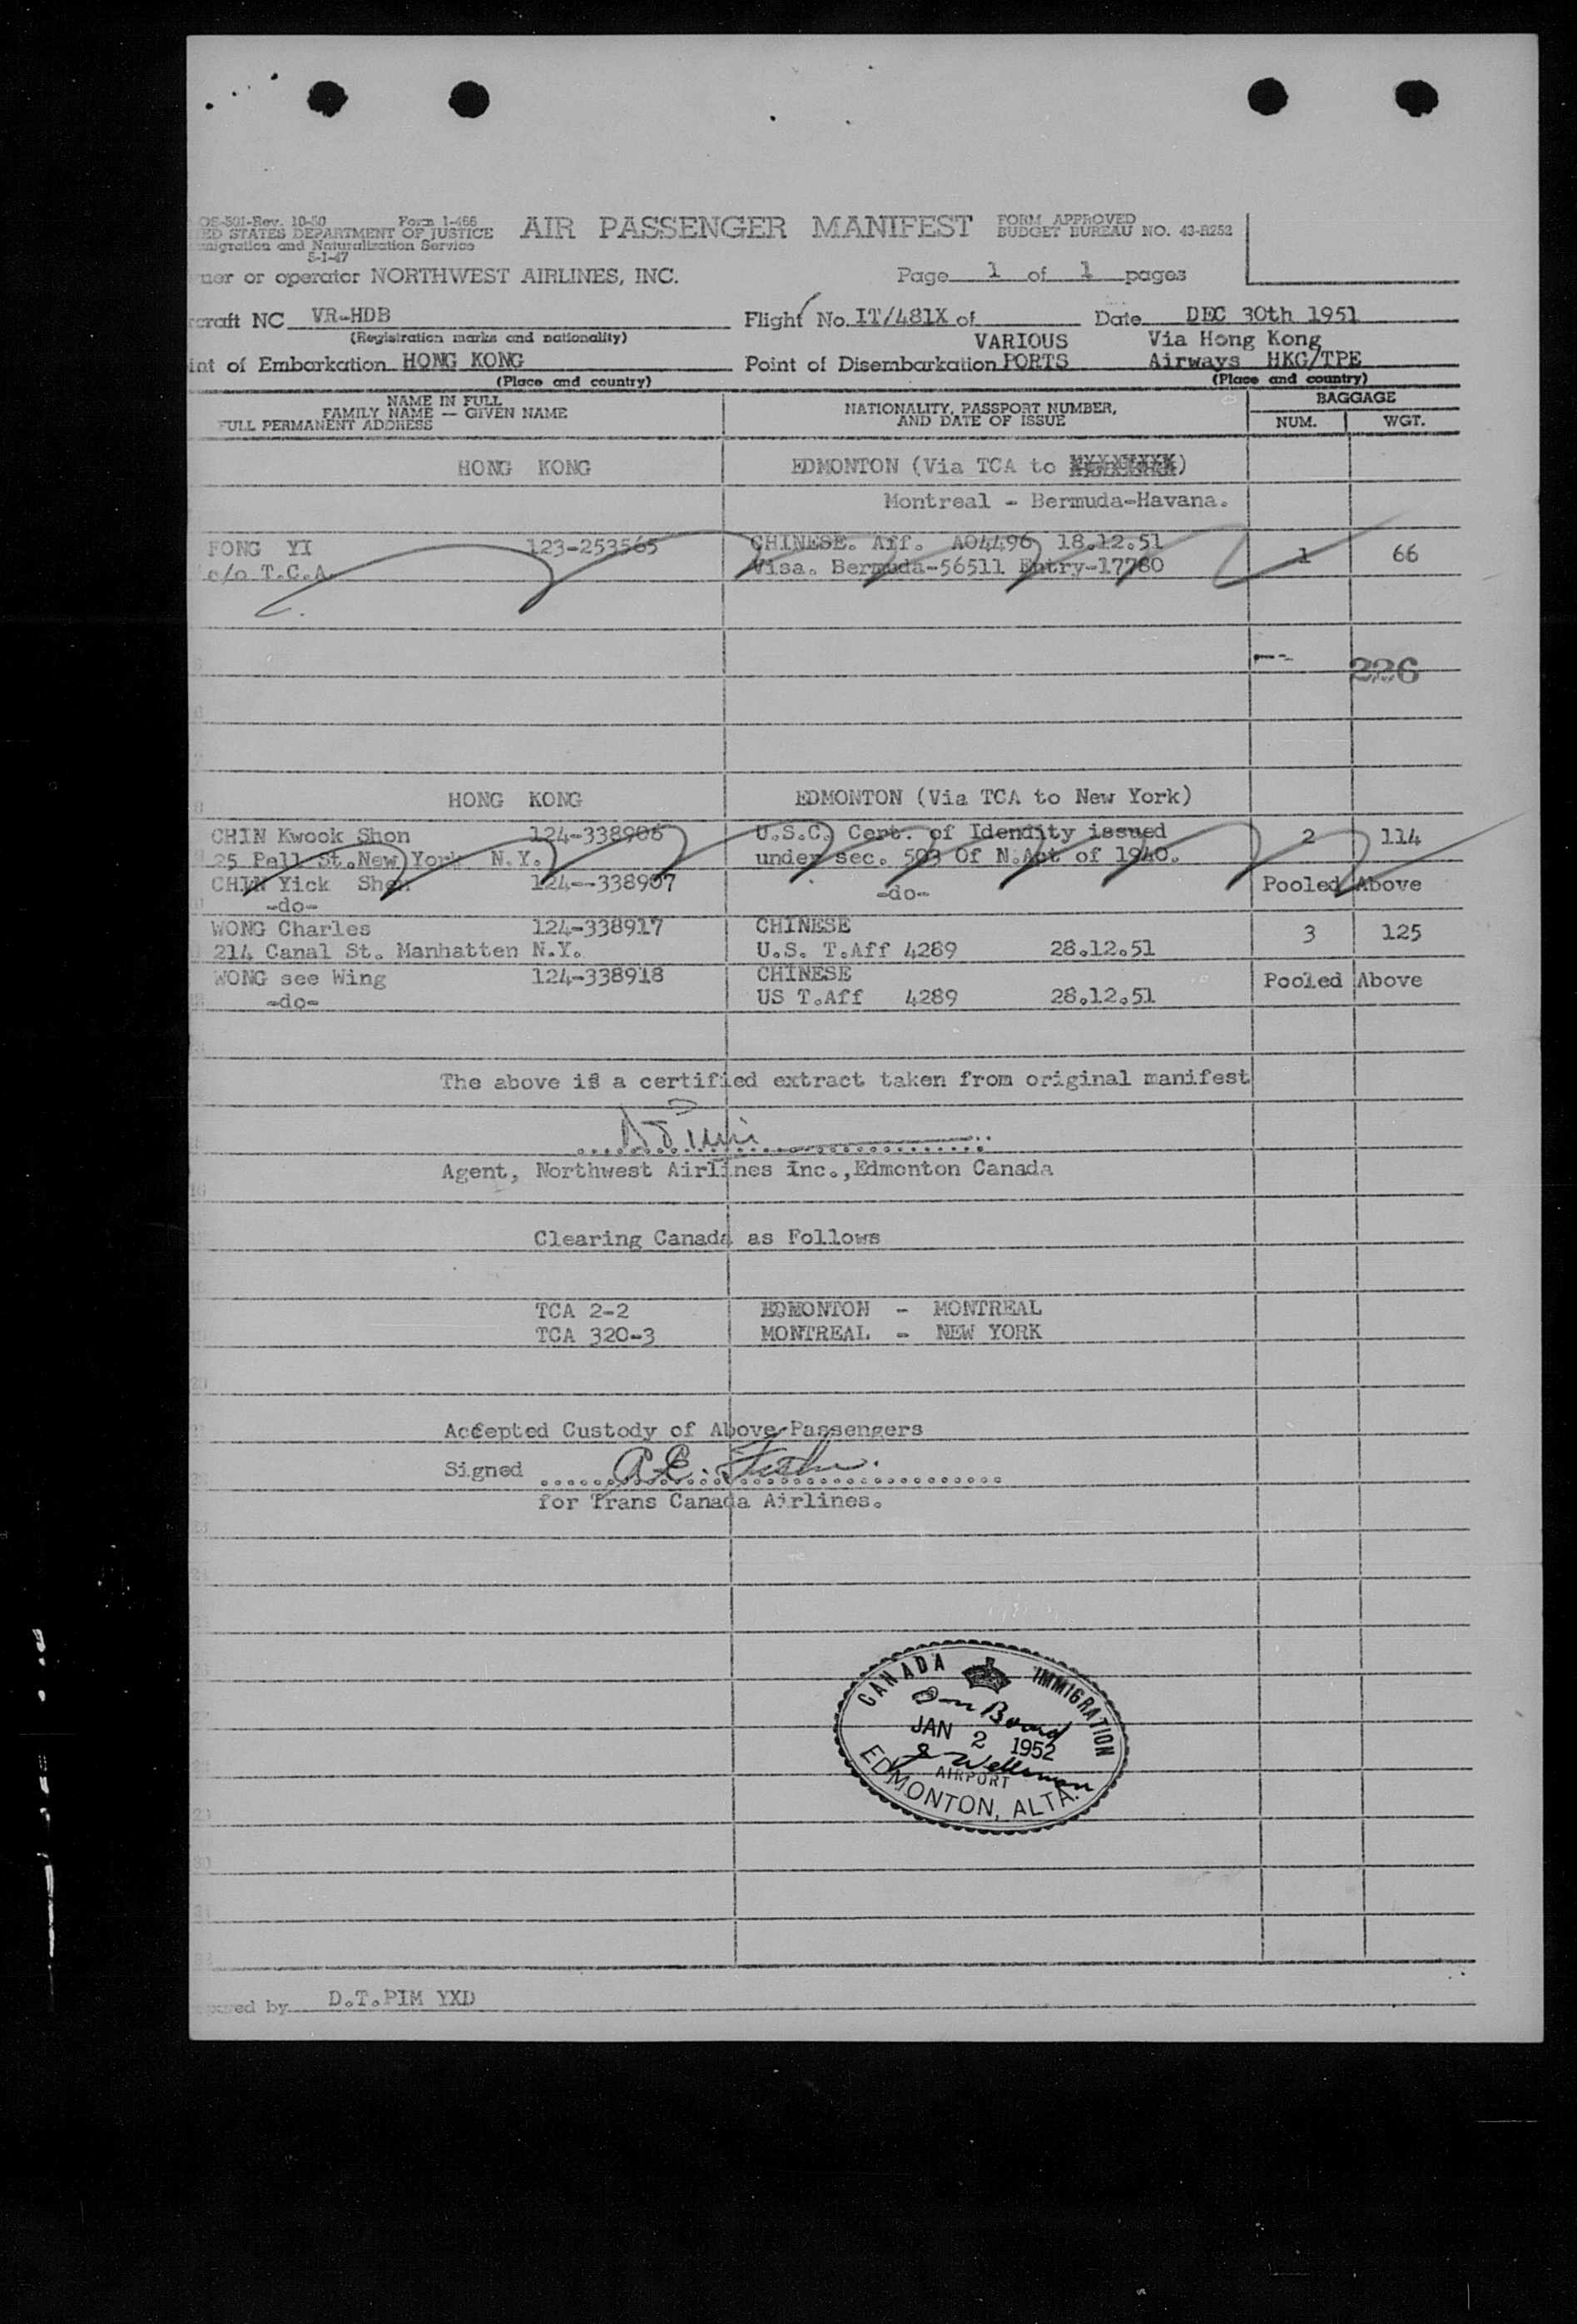 OS-501-Rev. 10-50 Form I-466
ED STATES DEPARTMENT OF JUSTICE
migration and Naturalization Service
5-1-47
AIR PASSENGER MANIFEST
FORM APPROVED
BUDGET BUREAU NO. 43-R252
ner or operator NORTHWEST AIRLINES, INC. Page 1 of 1 pages
craft NC VR-HDB Flight No. IT/481X of Date DEC 30th 1951
(Registration marks and nationality) VARIOUS Via Hong Kong
int of Embarkation HONG KONG Point of Disembarkation PORTS Airways HKG/TPE
(Place and country) (Place and country)
NAME IN FULL
FAMILY NAME — GIVEN NAME
FULL PERMANENT ADDRESS
NATIONALITY, PASSPORT NUMBER,
AND DATE OF ISSUE
BAGGAGE
NUM. WGT.
HONG KONG EDMONTON (Via TCA to )
Montreal - Bermuda-Havana.
FONG YI 123-253565 CHINESE. Aff. AO4496 18.12.51
c/o T.C.A. Visa. Bermuda-56511 Entry-17780 1 66
226
HONG KONG EDMONTON (Via TCA to New York)
CHIN Kwook Shon 124-338906 U.S.C. Cert. of Identity issued 2 114
25 Pell St.New York N.Y. under sec. 503 Of N.Act of 1940.
CHIN Yick Shen 124--338907 -do- Pooled Above
-do-
WONG Charles 124-338917 CHINESE 3 125
214 Canal St. Manhatten N.Y. U.S. T.Aff 4289 28.12.51
WONG see Wing 124-338918 CHINESE Pooled Above
-do- US T.Aff 4289 28.12.51
The above is a certified extract taken from original manifest
Agent, Northwest Airlines Inc.,Edmonton Canada
Clearing Canada as Follows
TCA 2-2 EDMONTON - MONTREAL
TCA 320-3 MONTREAL - NEW YORK
Accepted Custody of Above Passengers
Signed A.E. Fisher.
for Trans Canada Airlines.
CANADA IMMIGRATION
JAN 2 1952
AIRPORT
EDMONTON, ALTA.
ared by D.T.PIM YXD